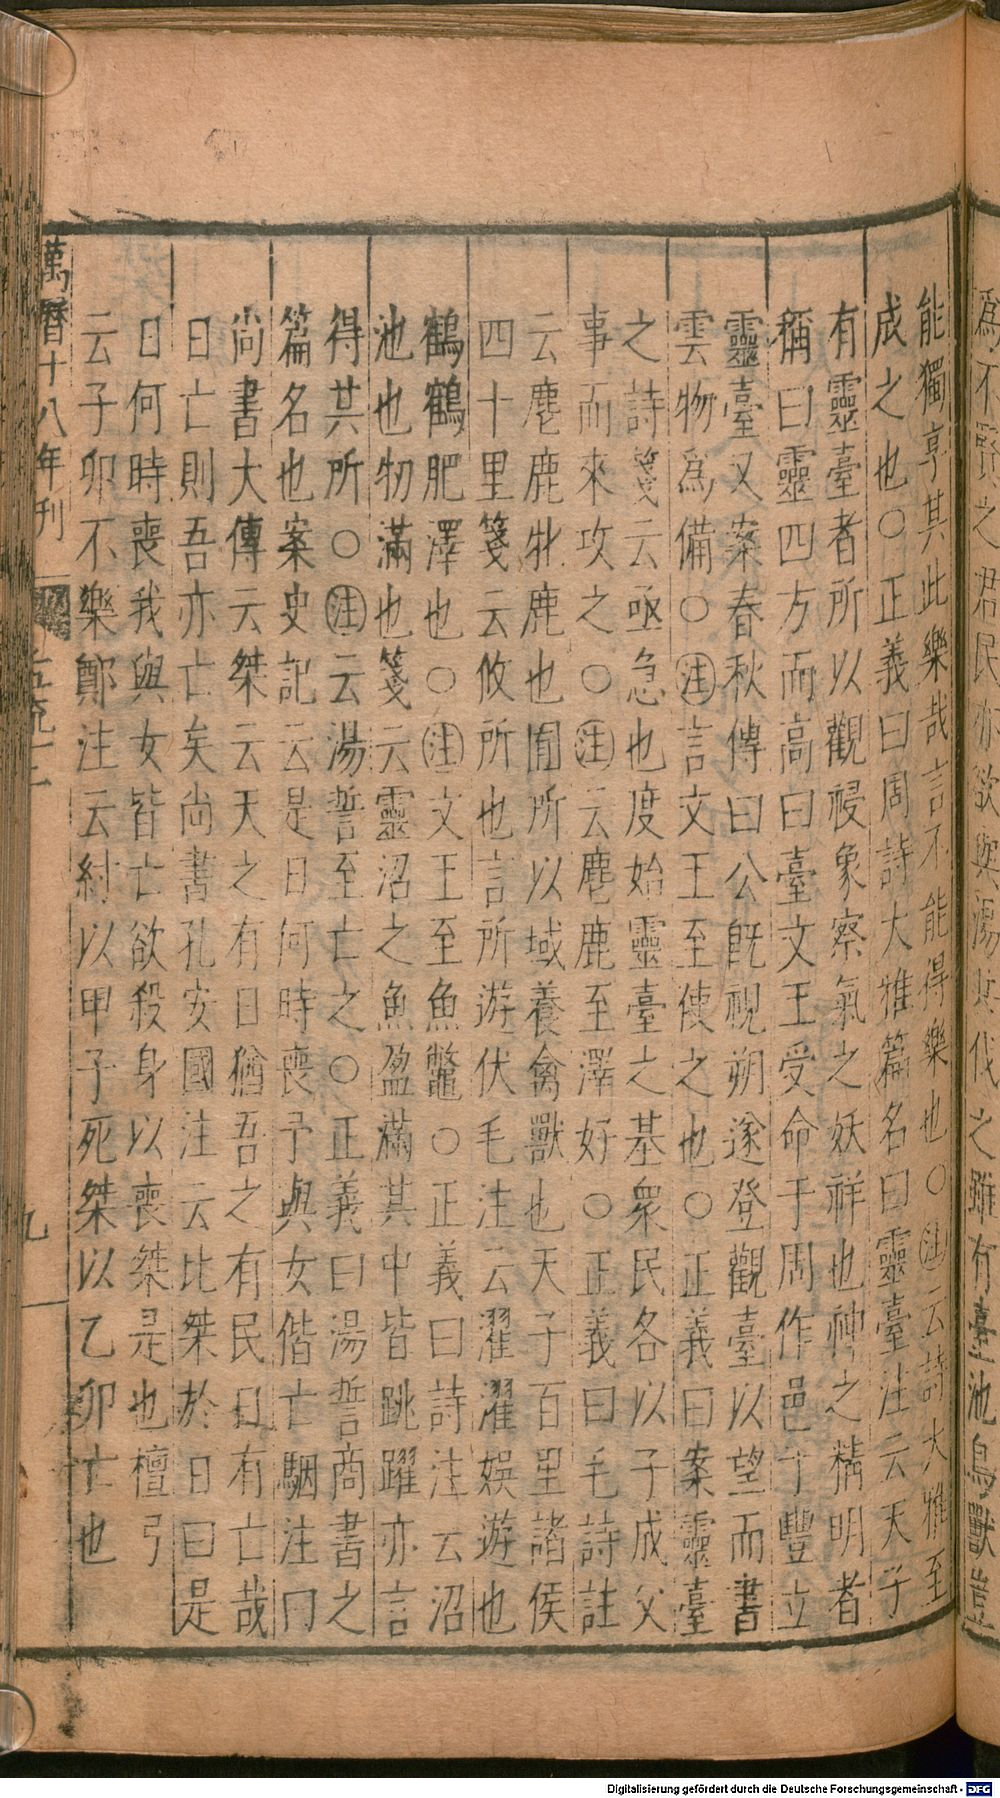 爲不賢之君民亦欲與湯共伐之雖有臺池鳥獸豈
能獨享其此樂哉言不能得樂也○注云詩大雅至
成之也○正義曰周詩大雅篇名曰靈臺注云天子
有靈臺者所以觀祲象察氣之妖祥也神之精明者
稱曰靈四方而高曰臺文王受命于周作邑于豐立
靈臺又案春秋傳曰公旣視朔遂登觀臺以望而書
雲物爲備○注言文王至使之也○正義曰案靈臺
之詩箋云亟急也度始靈臺之基眾民各以子成父
事而來攻之○注云麀鹿至澤好○正義曰毛詩註
云麀鹿牝鹿也囿所以域養禽獸也天子百里諸侯
四十里箋云攸所也言所遊伏毛注云濯濯娛遊也
鶴鶴肥澤也○注文王至魚鼈○正義曰詩注云沼
池也牣滿也箋云靈沼之魚盈滿其中皆跳躍亦言
得其所○注云湯誓至亡之○正義曰湯誓商書之
篇名也案史記云是日何時喪予與女偕亡駰注
尚書大傳云桀云天之有日猶吾之有民日有亡哉
日亡則吾亦亡矣尚書孔安國注云比桀於日曰是
日何時喪我與女皆亡欲殺身以喪桀是也檀弓
云子卯不樂鄭注云紂以甲子死桀以乙卯亡也
萬曆十八年刊
九
Digitalisierung gefördert durch die Deutsche Forschungsgemeinschaft - DFG